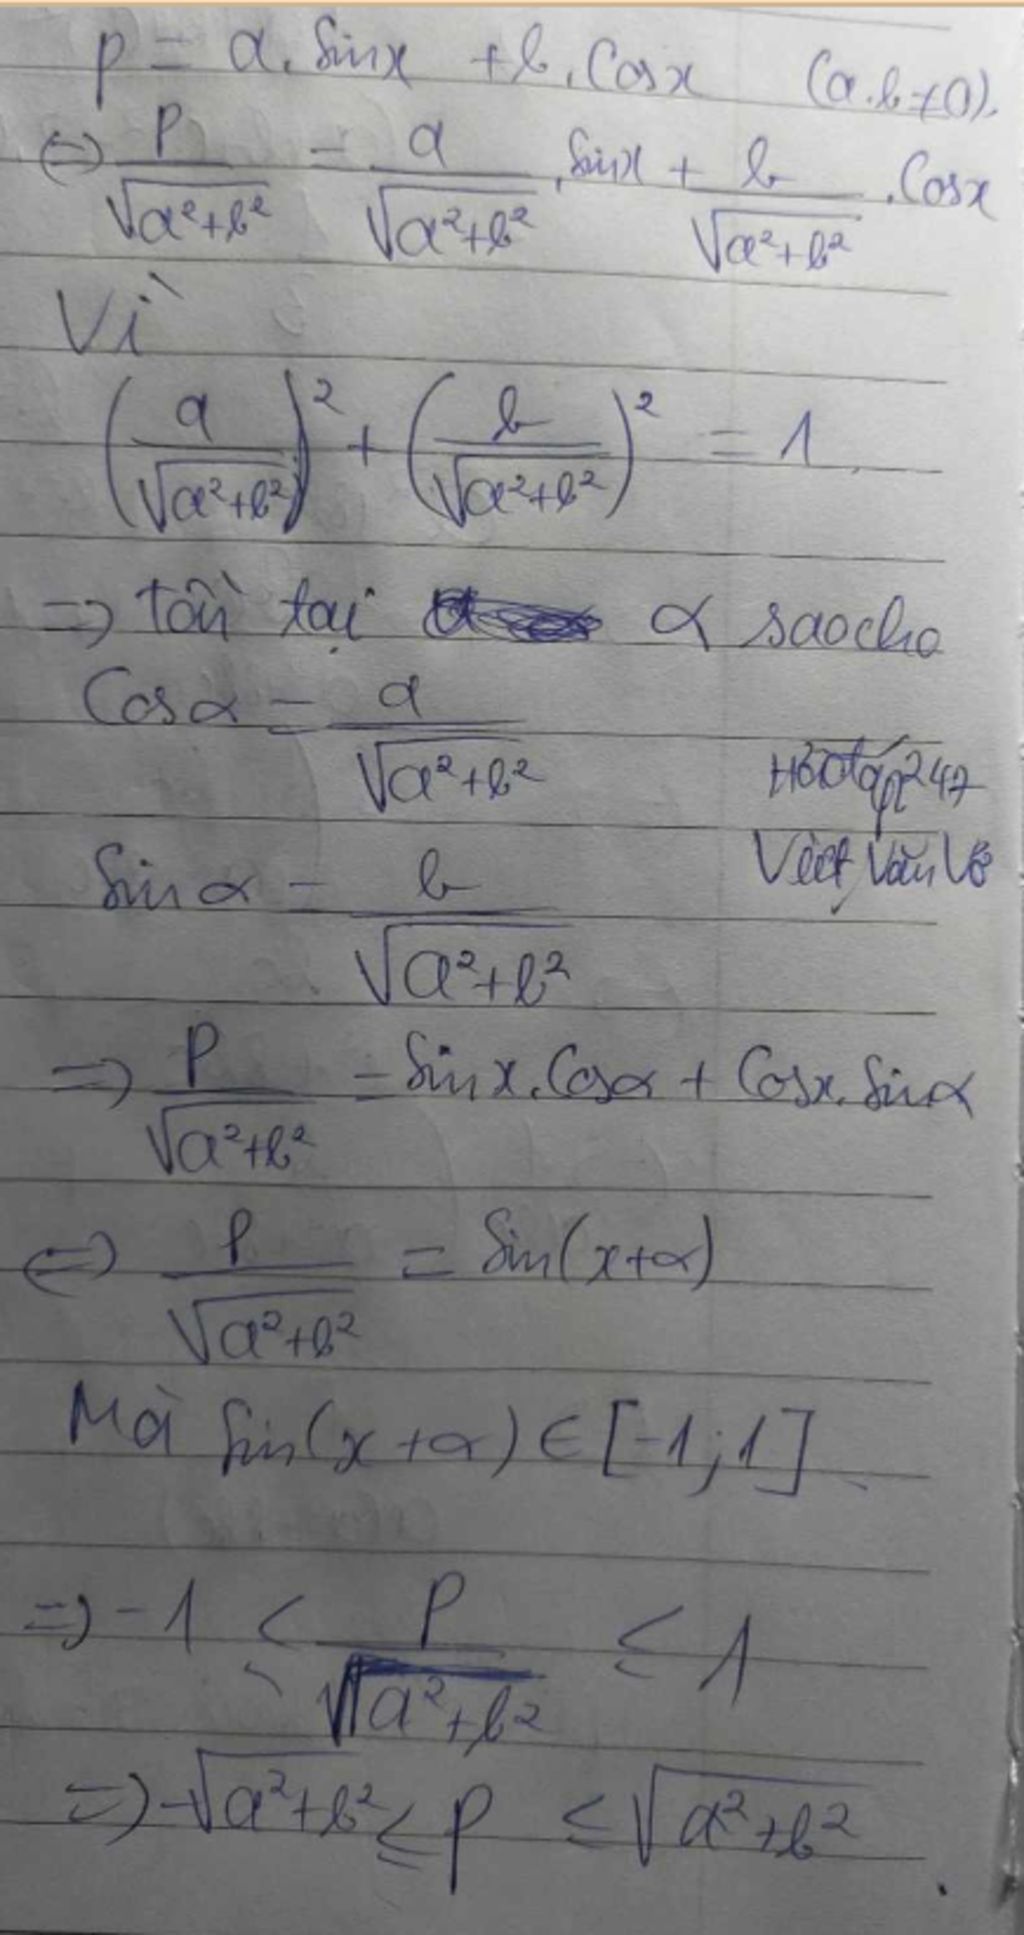 P = a.sinx + b.cosx (a.b≠0).
⇔ P/√(a²+b²) = a/√(a²+b²) .sinx + b/√(a²+b²) .cosx
Vì
(a/√(a²+b²))² + (b/√(a²+b²))² = 1
⇒ tồn tại α sao cho
Cosα = a/√(a²+b²)
Sinα = b/√(a²+b²)
⇒ P/√(a²+b²) = Sinx.Cosα + Cosx.Sinα
⇔ P/√(a²+b²) = Sin(x+α)
Mà Sin(x+α) ∈ [-1;1]
⇒ -1 ≤ P/√(a²+b²) ≤ 1
⇒ -√(a²+b²) ≤ P ≤ √(a²+b²)